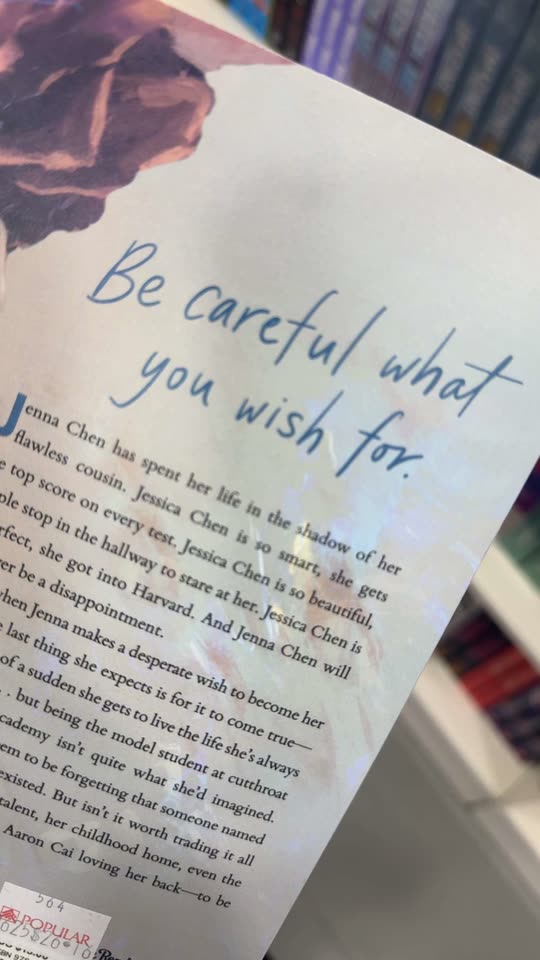 Be careful what
you wish for.
Jenna Chen has spent her life in the shadow of her
flawless cousin. Jessica Chen is so smart, she gets
top score on every test. Jessica Chen is so beautiful,
stop in the hallway to stare at her. Jessica Chen is
she got into Harvard. And Jenna Chen will
be a disappointment.
when Jenna makes a desperate wish to become her
last thing she expects is for it to come true—
of a sudden she gets to live the life she's always
. . but being the model student at cutthroat
isn't quite what she'd imagined.
to be forgetting that someone named
existed. But isn't it worth trading it all
talent, her childhood home, even the
Aaron Cai loving her back—to be
564
POPULAR